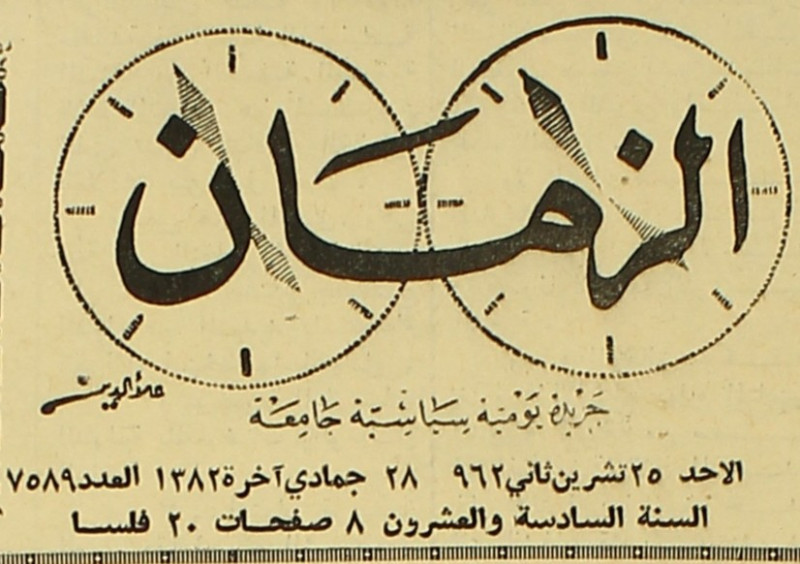 الزمان
علاءالدين
جريدة يومية سياسية جامعة
الاحد ٢٥ تشرين ثاني ٩٦٢ ٢٨ جمادي آخرة ١٣٨٢ العدد ٧٥٨٩
السنة السادسة والعشرون ٨ صفحات ٢٠ فلسا